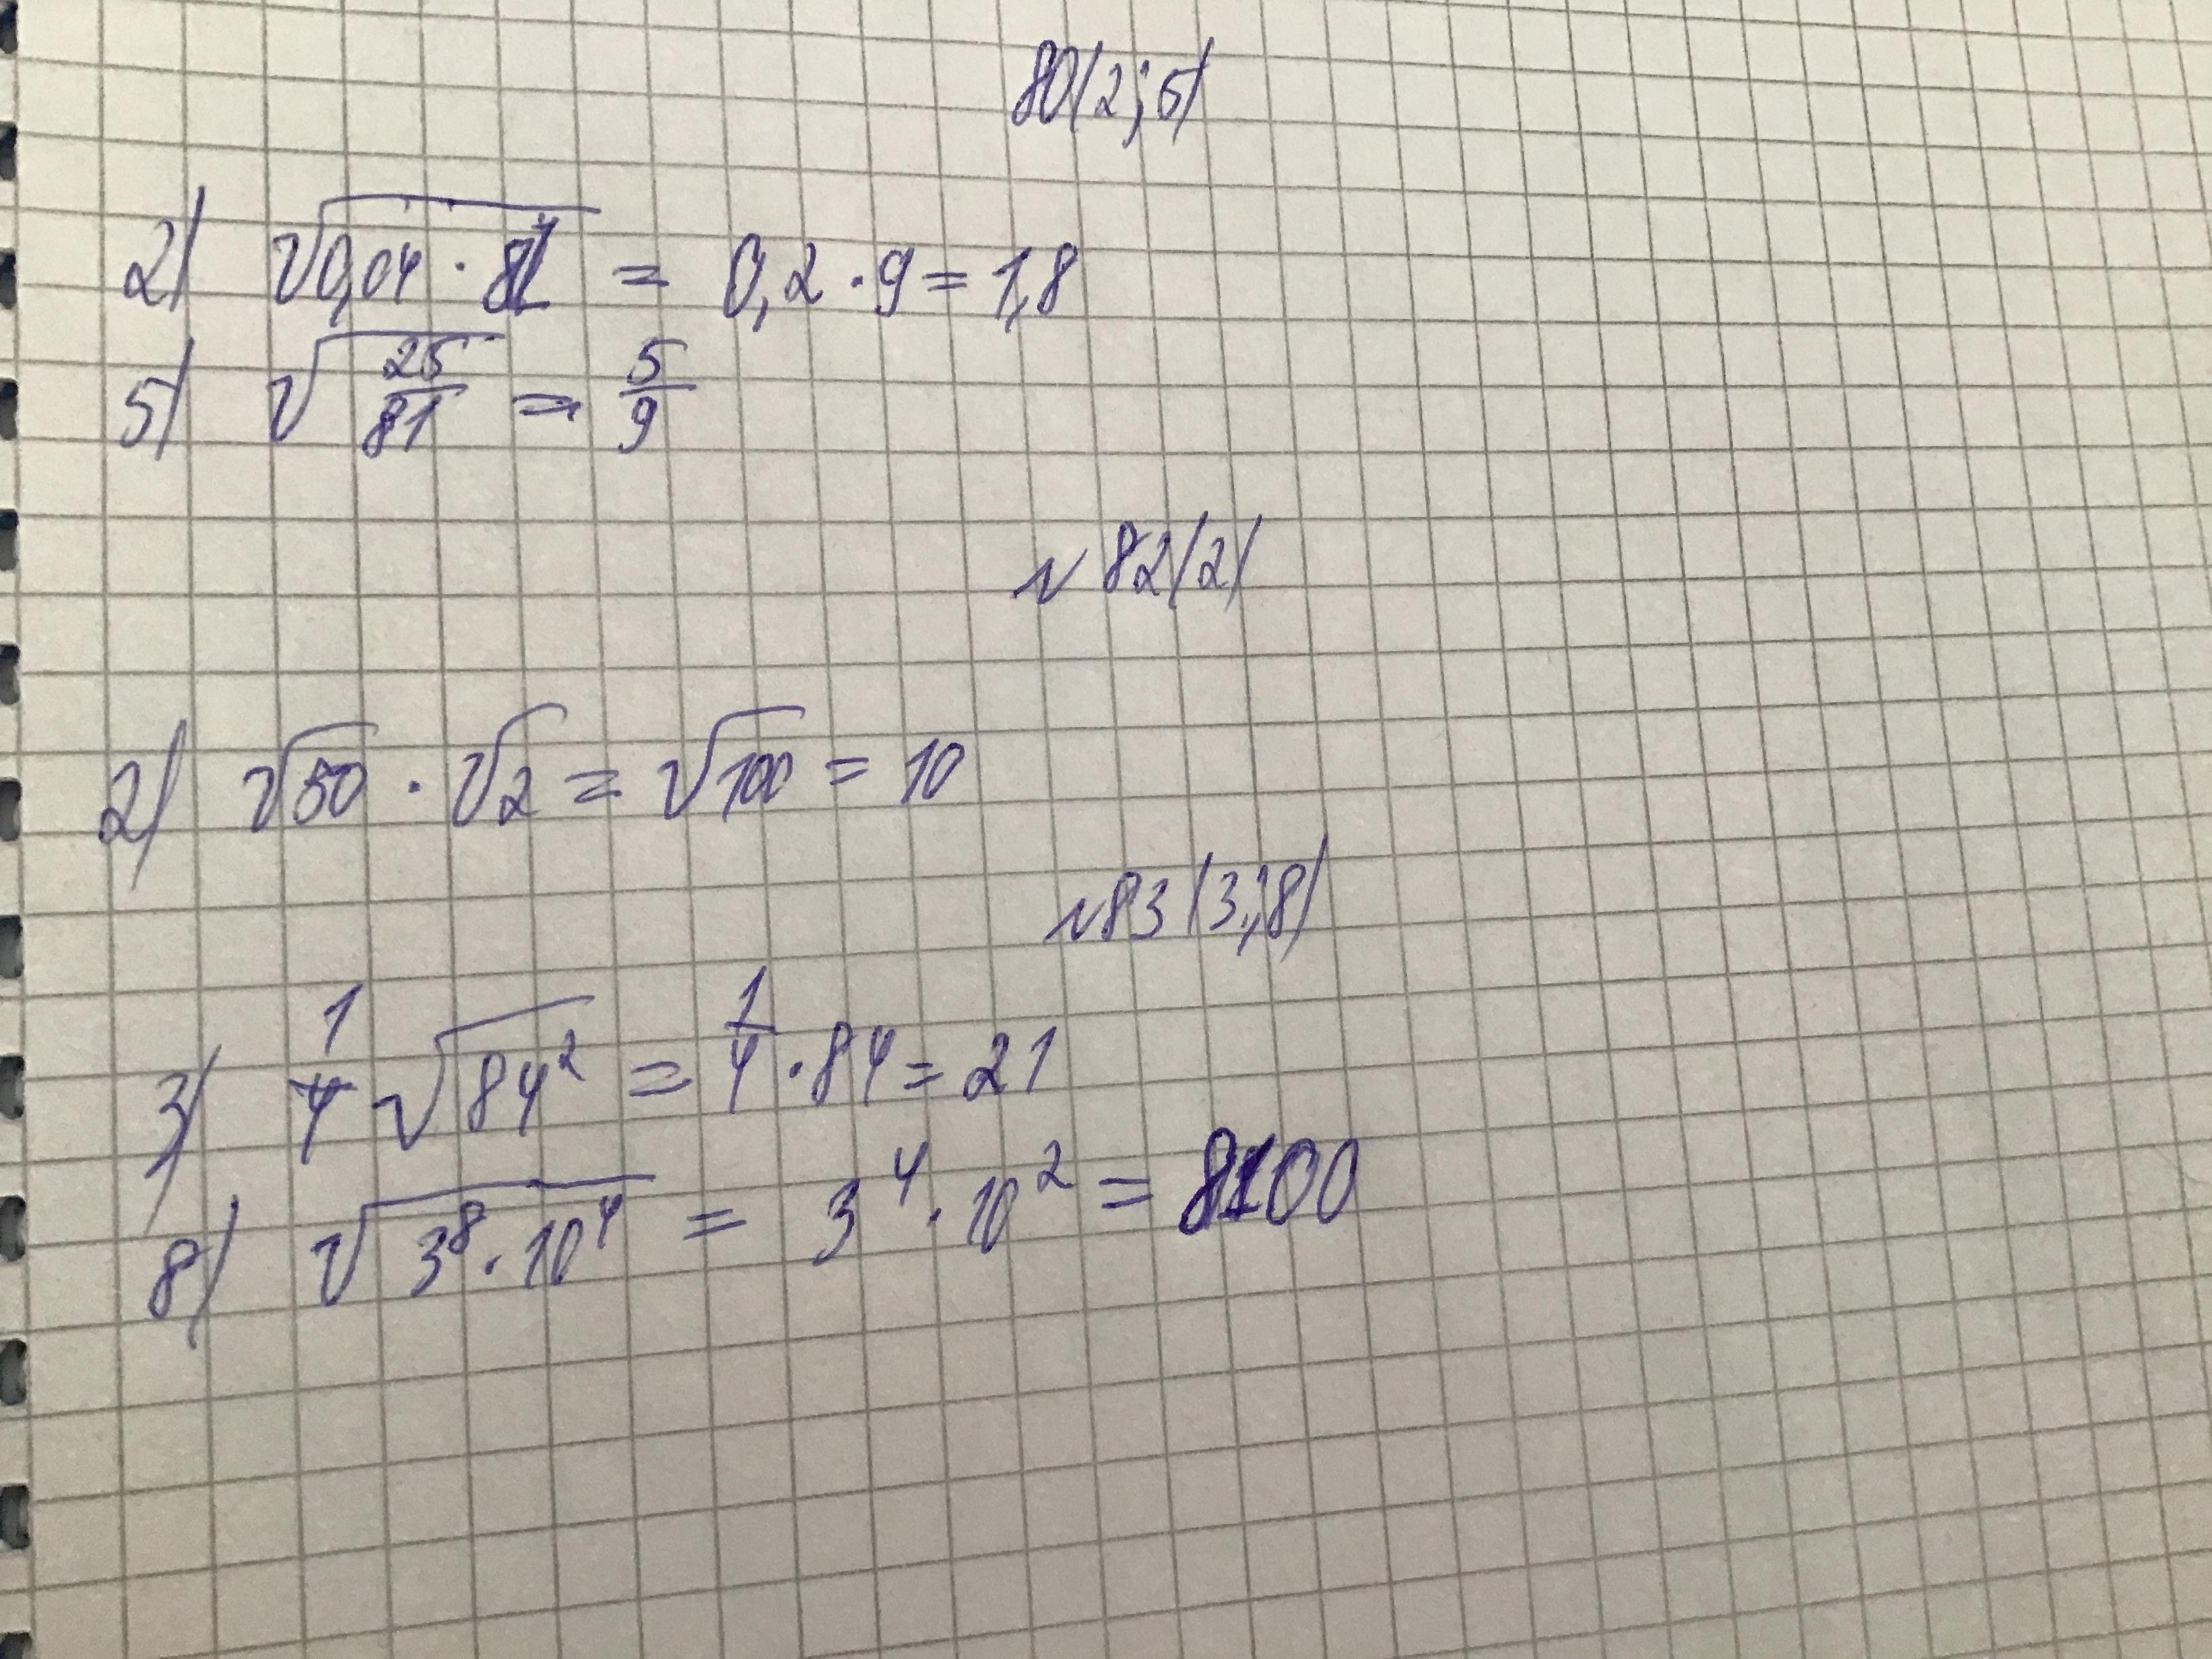 80(2;5)
2) √0,04 · 81 = 0,2 · 9 = 1,8
5) √25/81 = 5/9
№ 82(2)
2) √50 · √2 = √100 = 10
№83(3;8)
3) 1/4 √84² = 1/4 · 84 = 21
8) √3⁸ · 10⁴ = 3⁴ · 10² = 8100